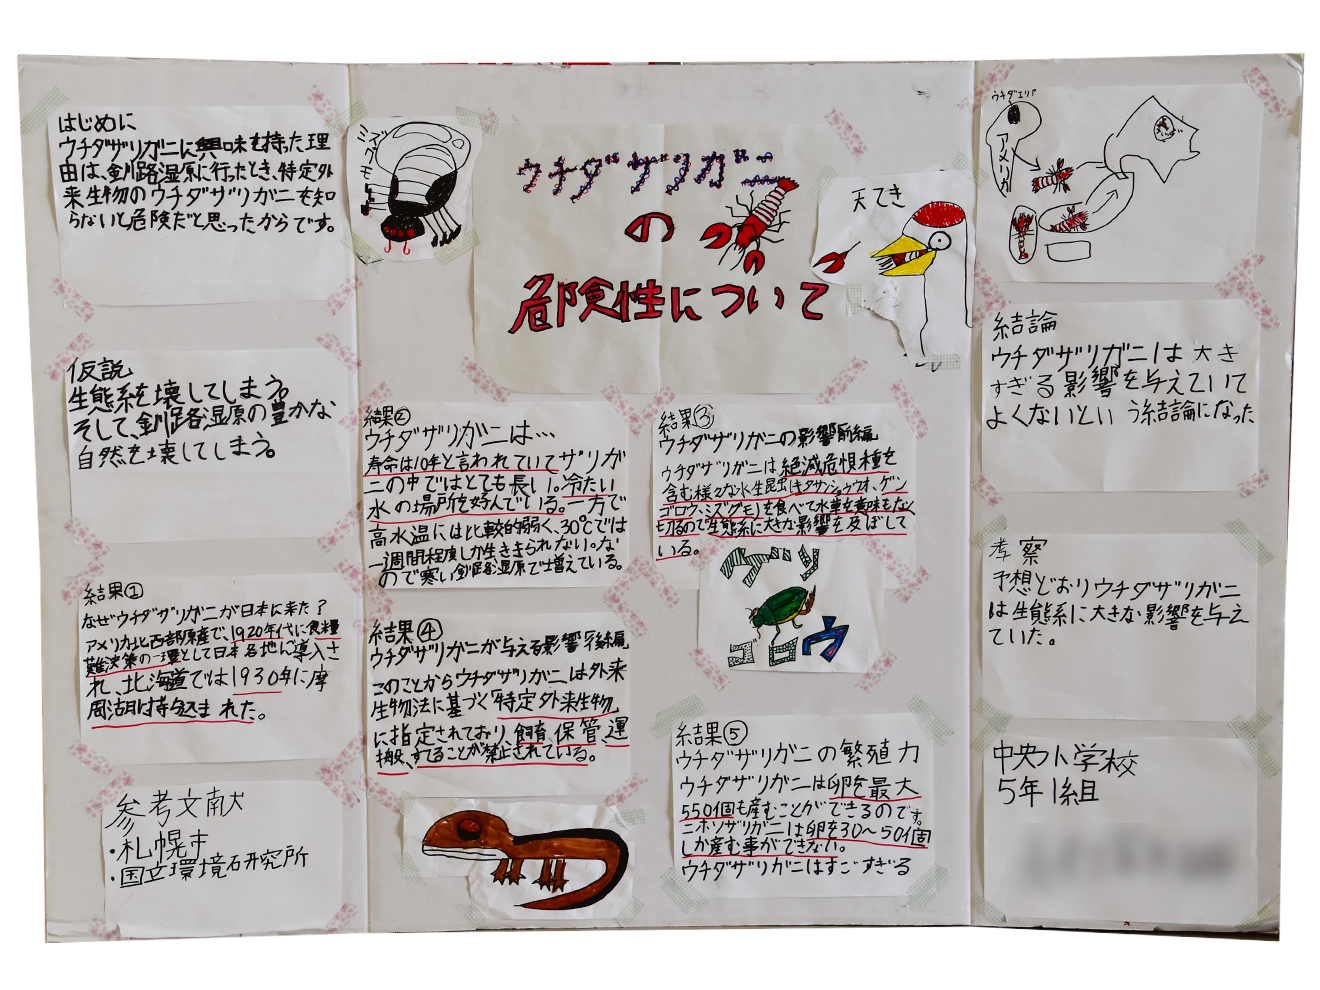 はじめに
ウチダザリガニに興味を持った理
由は、釧路湿原に行ったとき、特定外
来生物のウチダザリガニを知
らないと危険だと思ったからです。
仮説
生態系を壊してしまう。
そして、釧路湿原の豊かな
自然を壊してしまう。
結果①
なぜウチダザリガニが日本に来た?
アメリカ北西部原産で、1920年代に食糧
難決策の一環として日本各地に導入さ
れ、北海道では1930年に摩
周湖に持ち込まれた。
参考文献
・札幌市
・国立環境研究所
ミズグモ
ウチダザリガニ
の
危険性について
天てき
結果②
ウチダザリガニは…
寿命は10年と言われていてザリガ
ニの中ではとても長い。冷たい
水の場所を好んでいる。一方で
高水温には比較的弱く、30℃では
一週間程度しか生きられない。な
ので寒い釧路湿原で増えている。
結果③
ウチダザリガニの影響前編
ウチダザリガニは絶滅危惧種を
含む様々な水生昆虫(キタサンショウウオ、ゲン
ゴロウ、ミズグモ)を食べて水草を意味もなく
切るので生態系に大きな影響を及ぼして
いる。
ゲンゴロウ
結果④
ウチダザリガニが与える影響後編
このことからウチダザリガニは外来
生物法に基づく「特定外来生物」
に指定されており、飼育、保管、運
搬、することが禁止されている。
結果⑤
ウチダザリガニの繁殖力
ウチダザリガニは卵を最大
550個も産むことができるのです。
ニホンザリガニは卵を30～50個
しか産む事ができない。
ウチダザリガニはすごすぎる
ウチダエリア
アメリカ
結論
ウチダザリガニは大き
すぎる影響を与えていて
よくないという結論になった
考察
予想どおりウチダザリガニ
は生態系に大きな影響を与え
ていた。
中央小学校
5年1組